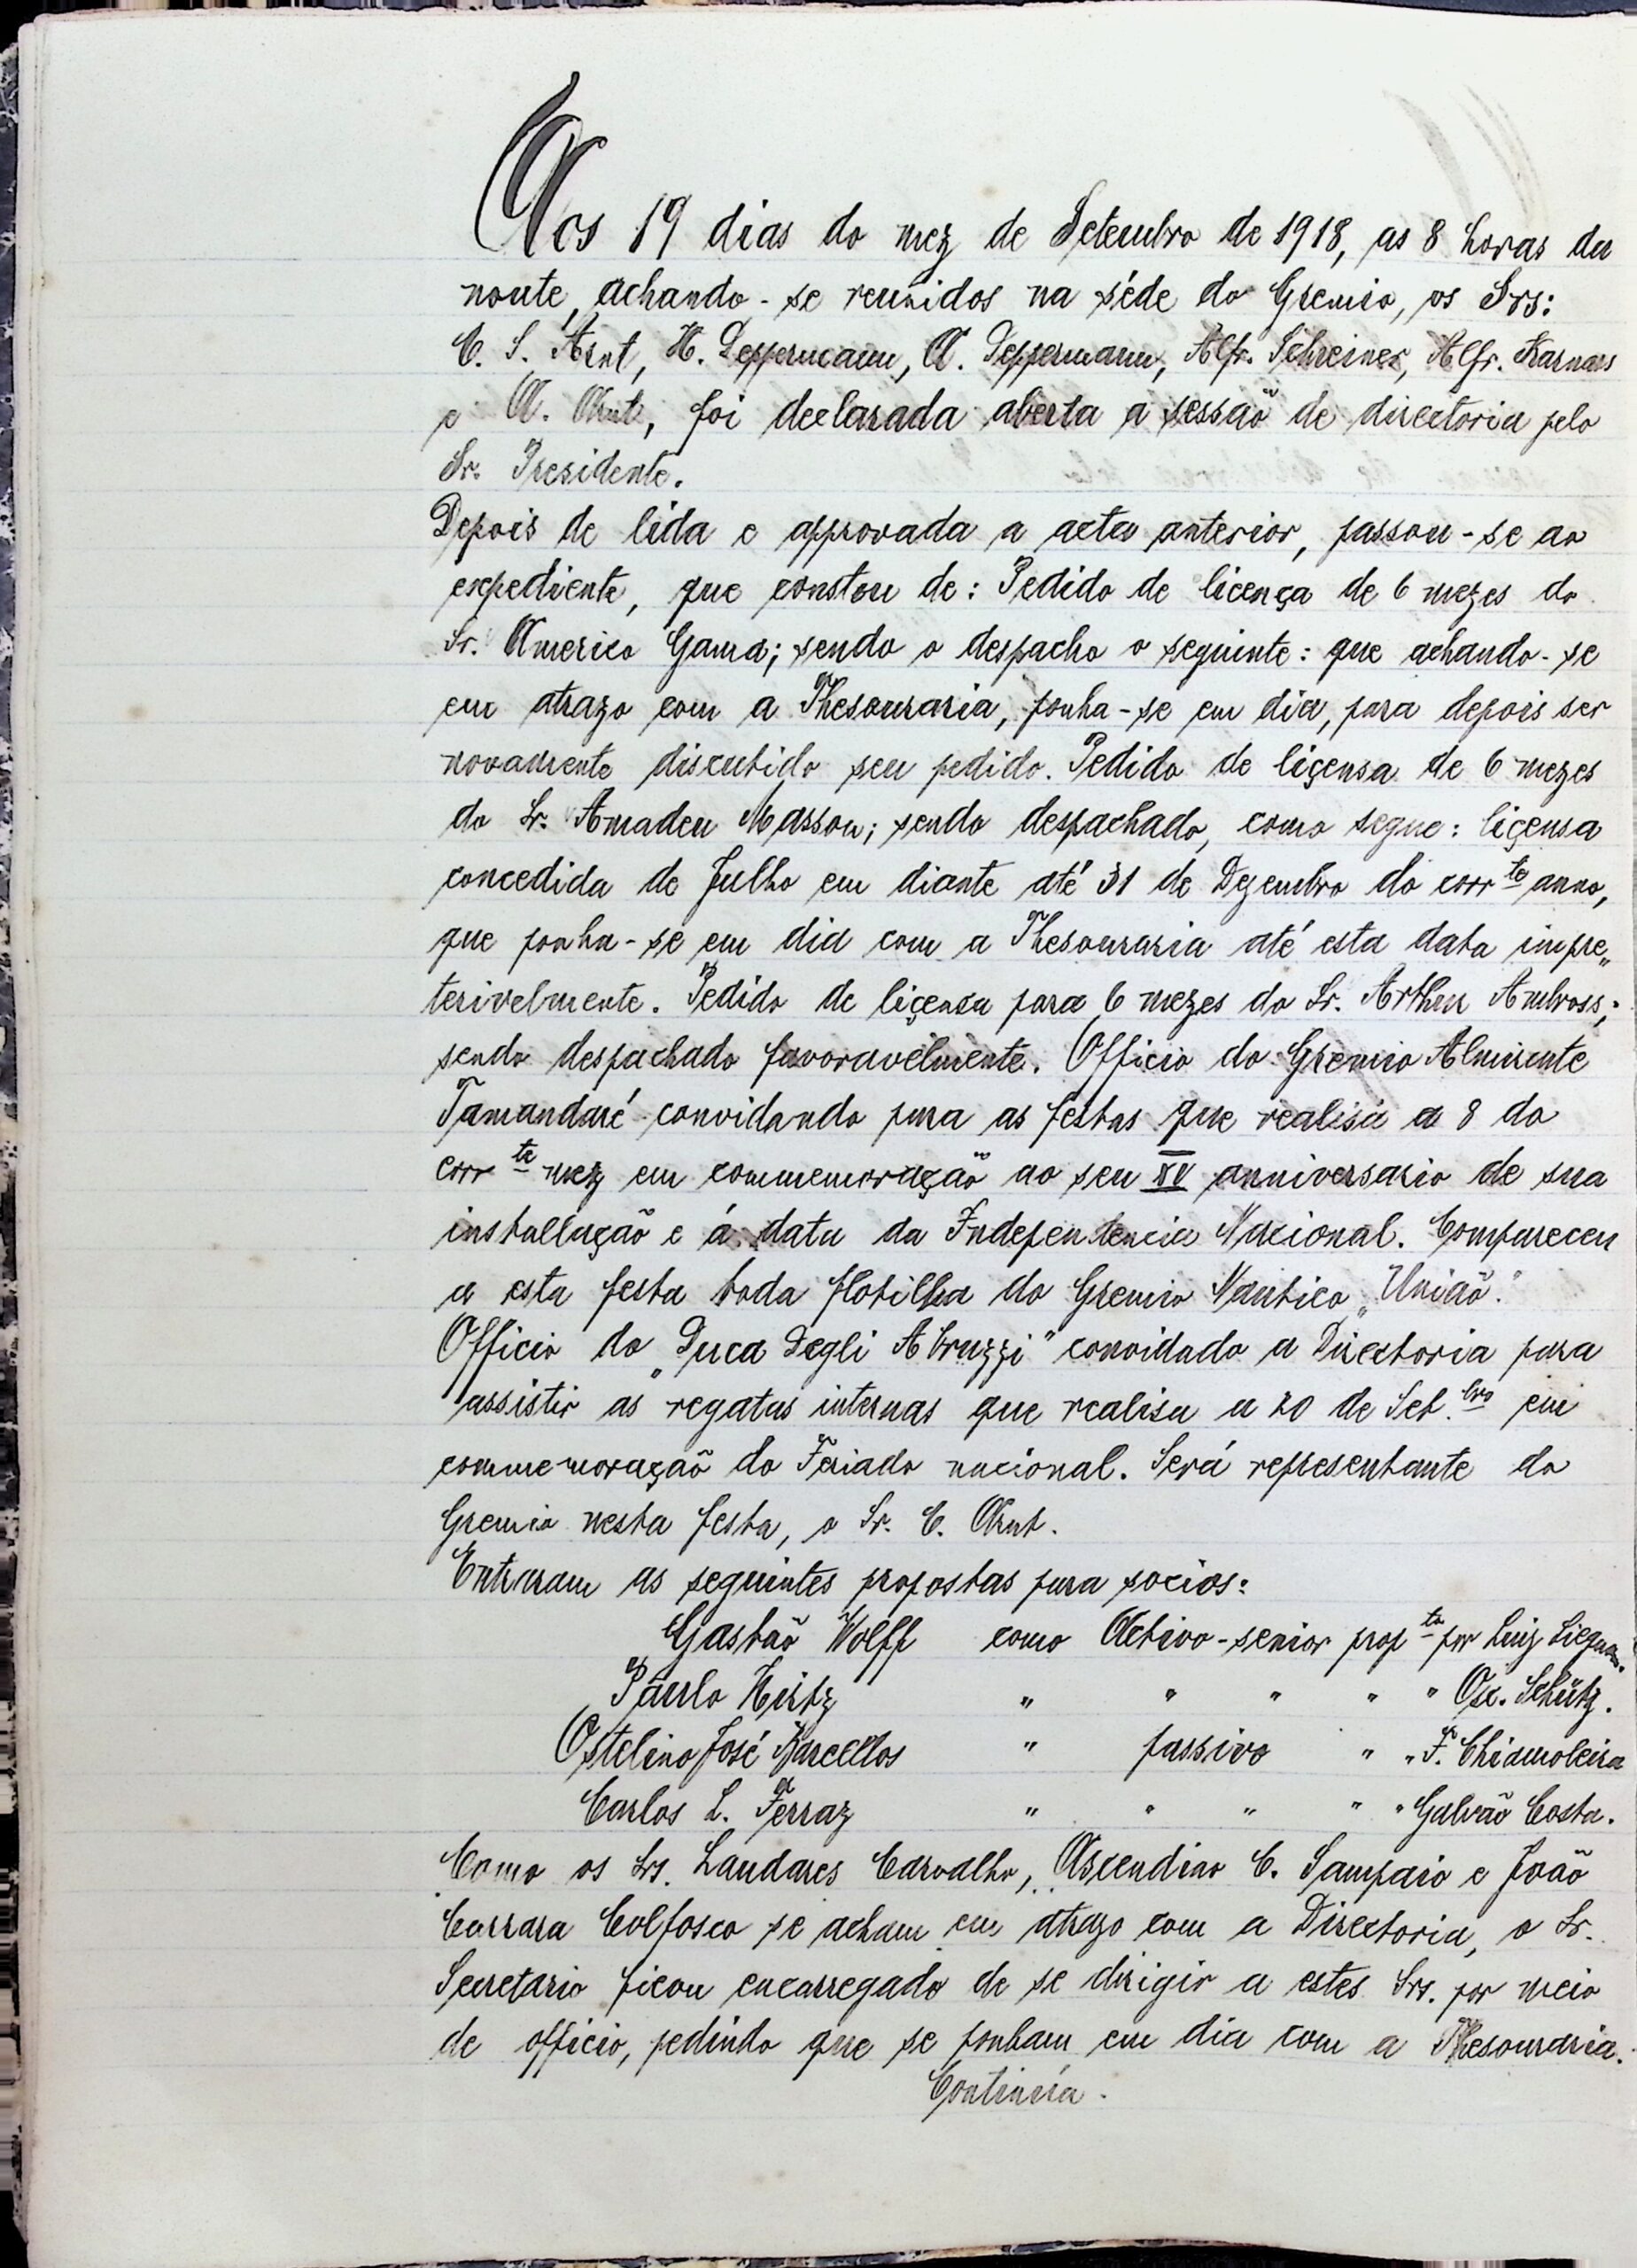 Aos 19 dias do mez de Setembro de 1918, as 8 horas da
noute, achando-se reunidos na séde do Gremio, os Srs:
C. S. Arnt, H. Deppermann, A. Deppermann, Alfr. Schreiner, Alfr. Karnass
e A. Arnt, foi declarada aberta a sessão de directoria pelo
Sr. Presidente.
Depois de lida e approvada a acta anterior, passou-se ao
expediente, que constou de: Pedido de licença de 6 mezes do
Sr. Americo Gama; sendo o despacho o seguinte: que achando-se
em atrazo com a Thesouraria, ponha-se em dia, para depois ser
novamente discutido seu pedido. Pedido de liçensa de 6 mezes
do Sr. Amadeu Masson; sendo despachado, como segue: liçensa
concedida de Julho em diante até 31 de Dezembro do corrte anno,
que ponha-se em dia com a Thesouraria até esta data impre„
terivelmente. Pedido de liçensa para 6 mezes do Sr. Arthur Ambross;
sendo despachado favoravelmente. Officio do Gremio Almirante
Tamandaré convidando para as festas que realisa a 8 do
corrte mez em commemoração ao seu XV anniversario de sua
installação e á data da Independencia Nacional. Compareceu
a esta festa toda flotilha do Gremio Nautico „União".
Officio do „Duca Degli Abruzzi" convidado a Directoria para
assistir as regatas internas que realisa a 20 de Set.bro em
commemoração do Feriado nacional. Será representante do
Gremio nesta festa, o Sr. C. Arnt.
Entraram as seguintes propostas para socios:
Gastão Wolff como Activo-senior propto por Luiz
Paulo Hirtz " " " " " Osc. Schütz.
Ostelino José Barcellos " passivo " " F. Chiamoleira
Carlos L. Ferraz " " " " " Galvão Costa.
Como os Srs. Landares Carvalho, Ascendino C. Sampaio e João
Carrara Colfosco se acham em atrazo com a Directoria, o Sr.
Secretario ficou encarregado de se dirigir a estes Srs. por meio
de officio, pedindo que se ponham em dia com a Thesouraria.
Continúa.